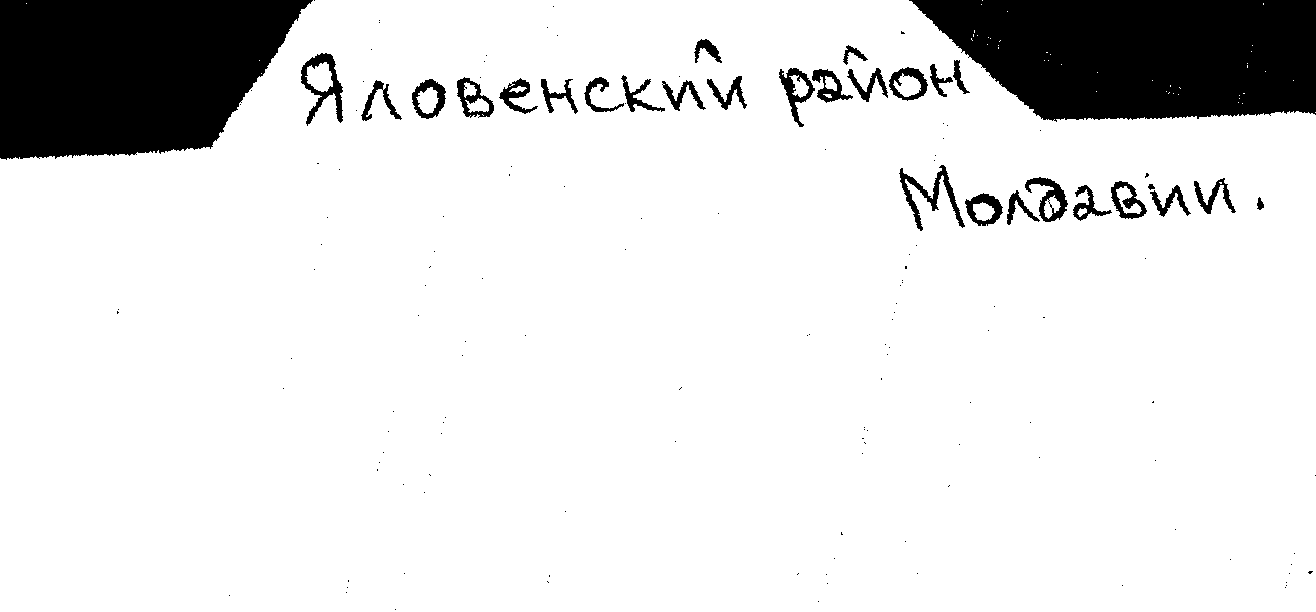 Яловенский район
Молдавии.